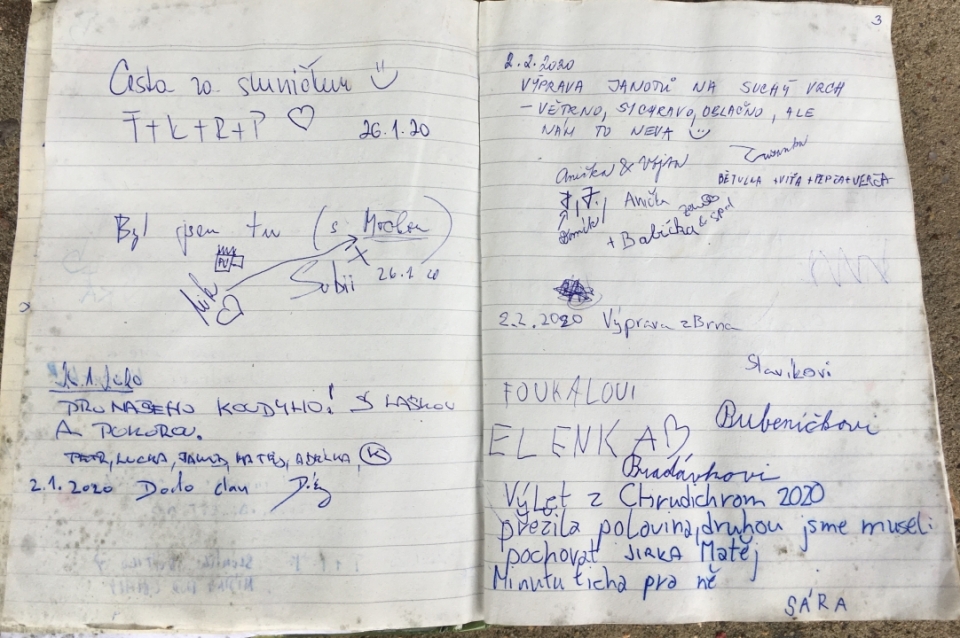 Cesta za sluníčkem
T+L+R+P
26.1.20
Byl jsem tu (s
Nik
26.1
PRO NAŠEHO KOUDYHO! S LÁSKOU
A POKOROU.
PETR, LUCKA, JAKUB, MATĚJ, ADÉLKA, K
2.1.2020 Dodo clan
3
2.2.2020
VÝPRAVA JANOTŮ NA SUCHÝ VRCH
- VĚTRNO, SYCHRAVO, OBLAČNO, ALE
NÁM TO NEVA
Anička & Vojta
J.J. Anička
+ Babička
2.2.2020 Výprava z Brna
Slavíkovi
FOUKALOVI
Bubeníčkovi
ELENKA
Bradávkovi
Výlet z Chrudichrom 2020
přežila polovina, druhou jsme museli
pochovat JIRKA Matěj
Minutu ticha pro ně
SÁRA